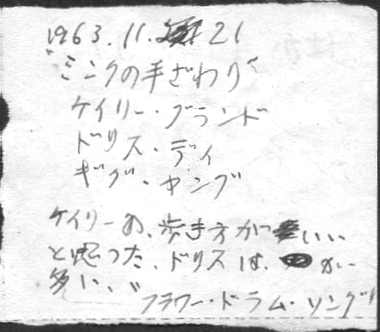 1963.11.21
"ミンクの手ざわり"
ケイリー・グランド
ドリス・デイ
ギグ・ヤング
ケイリーの、歩き方がいい
と思った、ドリスは、が
多い、、
フラワー・ドラム・ソング